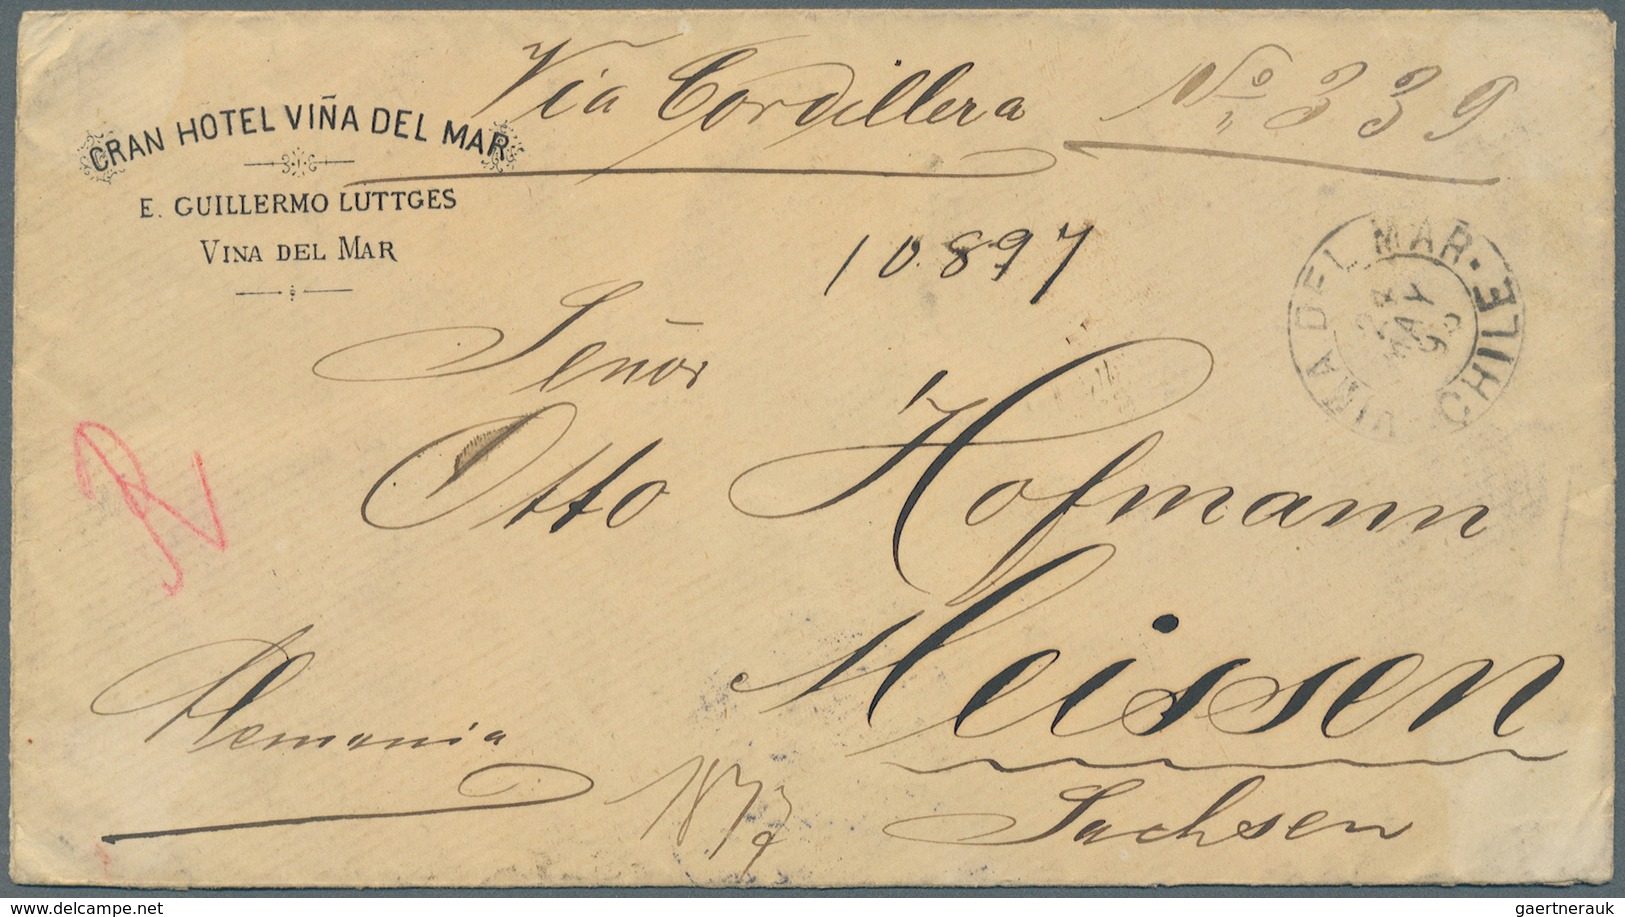 Via Cordillera No 339
GRAN HOTEL VIÑA DEL MAR
E. GUILLERMO LUTTGES
VINA DEL MAR
10897
VIÑA DEL MAR. CHILE
MAY
Señor
Otto Hofmann
Meissen
Sachsen
Alemania
R
gaertnerauk